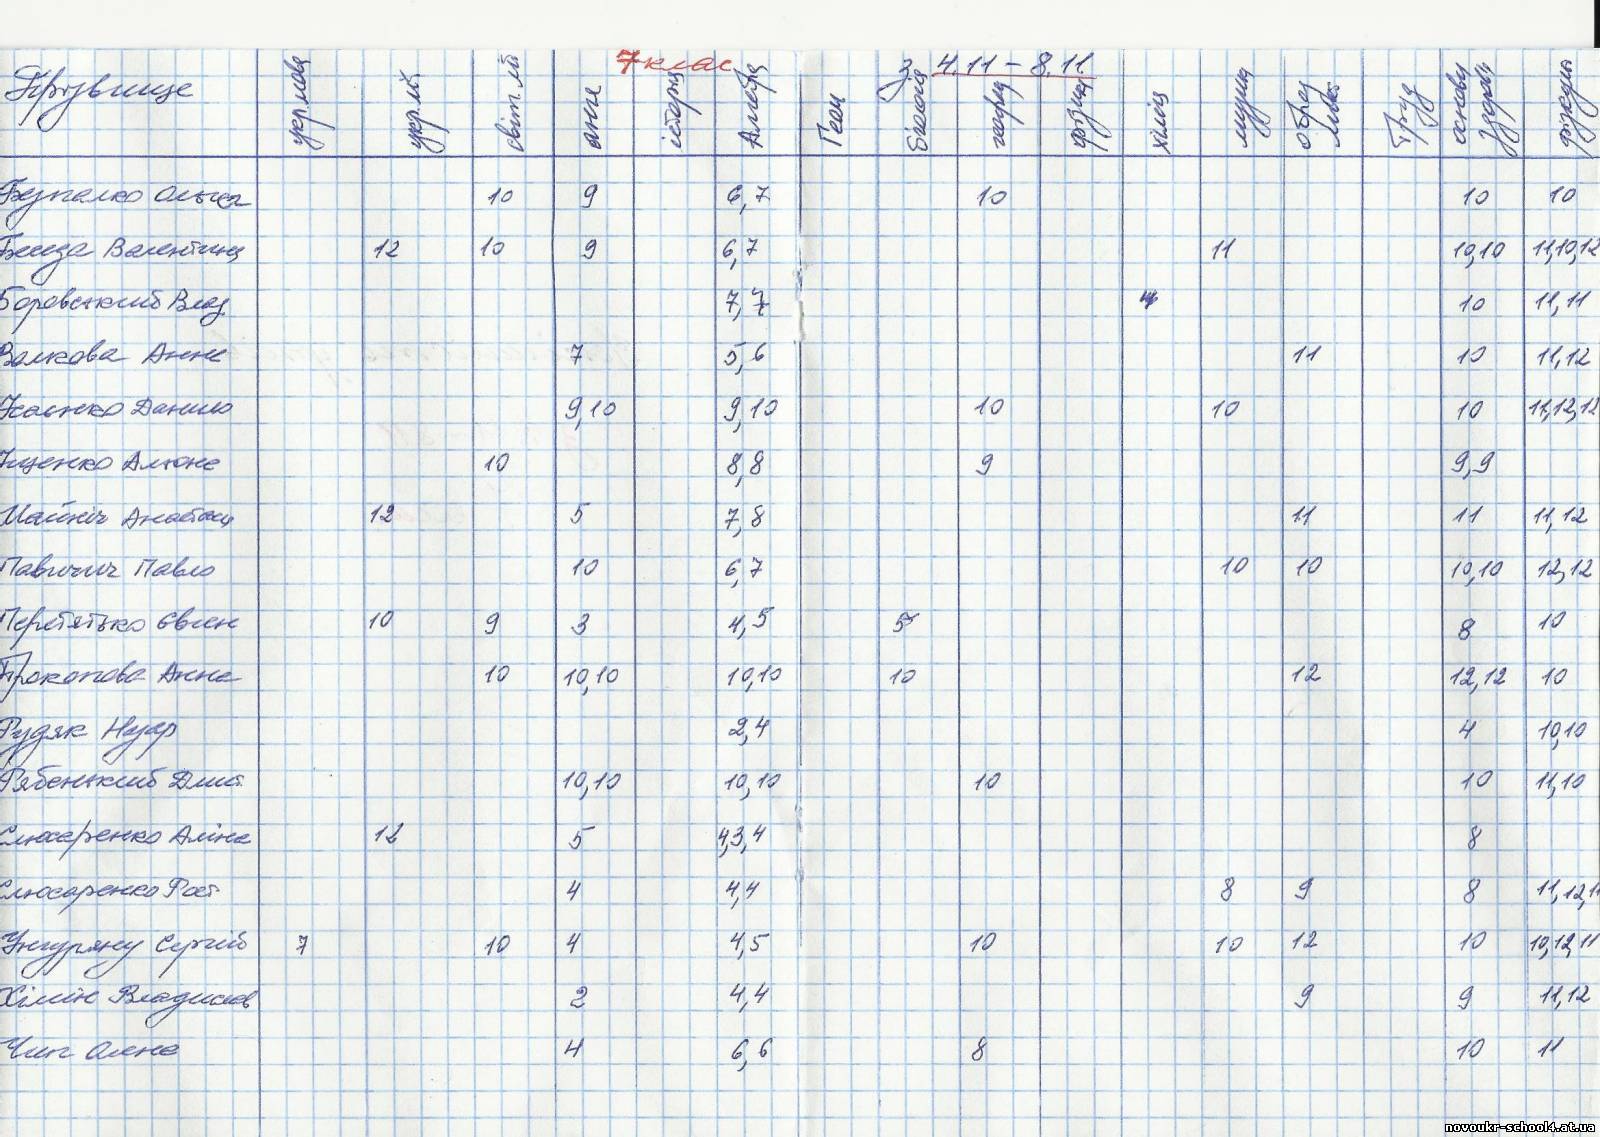 7 клас з 4.11 – 8.11.
Прізвище укр.мова укр.літ світ.літ англ історія Алгебра Геом біологія географ фізика хімія музика образ мист Труд основи здоров фізкульт
Безпалко Ольга 10 9 6,7 10 10 10
Валентина 12 10 9 6,7 11 10,10 11,10,12
Боровський Влад 7,7 4 10 11,11
Волкова Анна 7 5,6 11 10 11,12
Данило 9,10 9,10 10 10 10 11,12,12
Іщенко Альона 10 8,8 9 9,9
12 5 7,8 11 11 11,12
Павло 10 6,7 10 10 10,10 12,12
Перетятько Євген 10 9 3 4,5 5 8 10
Прокопова Анна 10 10,10 10,10 10 12 12,12 10
Рудяк 2,4 4 10,10
Рябенький Дмит 10,10 10,10 10 10 11,10
Слюсаренко Аліна 12 5 4,3,4 8
Слюсаренко Рост 4 4,4 8 9 8 11,12,11
Унгуряну Сергій 7 10 4 4,5 10 10 12 10 10,12,11
Хімін Владислав 2 4,4 9 9 11,12
Чип Олена 4 6,6 8 10 11
novoukr-school4.at.ua